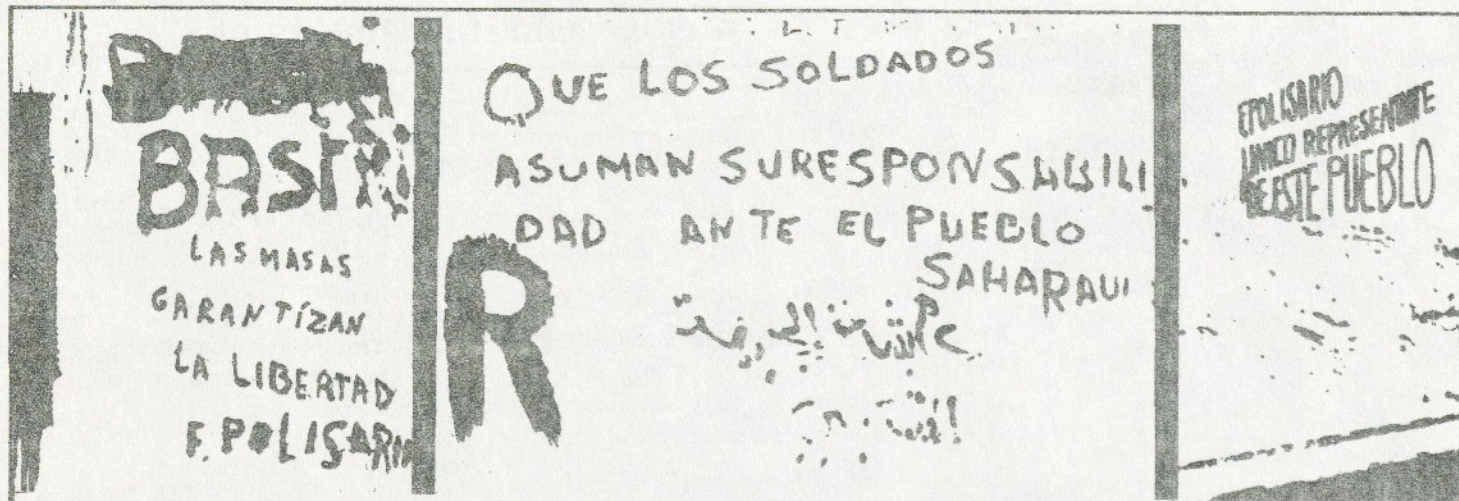 BASIRI
LAS MASAS
GARANTÍZAN
LA LIBERTAD
F. POLISARIO
QUE LOS SOLDADOS
ASUMAN SURESPONSABILI
DAD ANTE EL PUEBLO
SAHARAUI
R
FPOLISARIO
UNICO REPRESENTANTE
DE ESTE PUEBLO